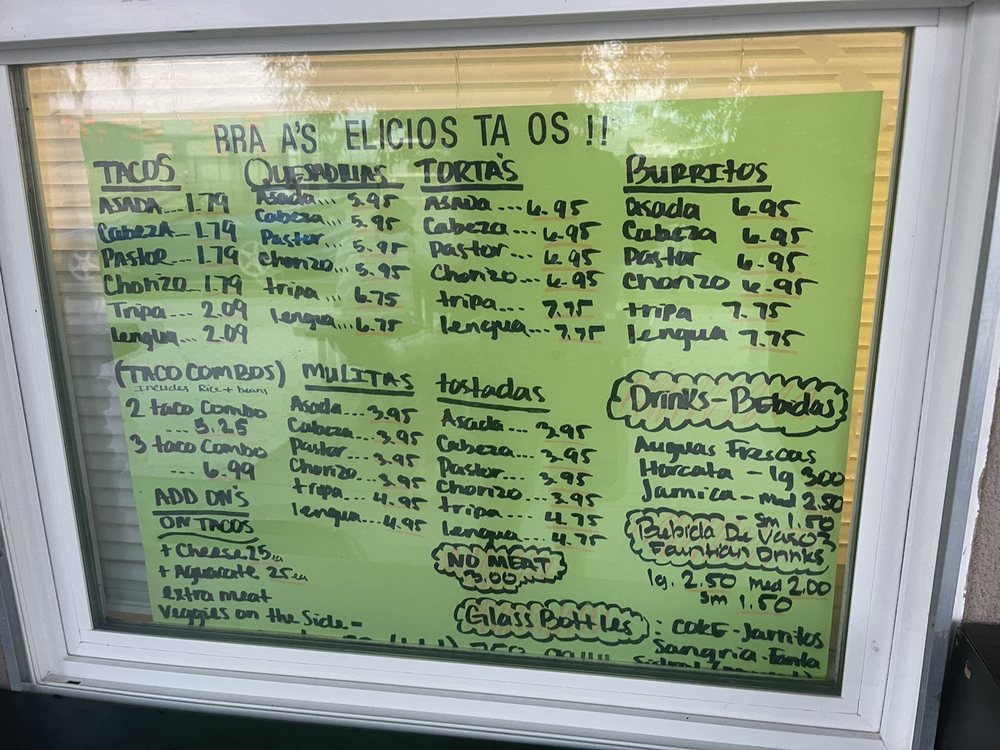 RRA A'S ELICIOS TA OS !!
TACOS
ASADA...1.79
Cabeza...1.79
Pastor...1.79
Chorizo..1.79
Tripa...2.09
lengua...2.09
(TACO COMBOS)
Includes Rice + beans
2 taco Combo
...5.25
3 taco Combo
...6.99
ADD ON'S
ON TACOS
+ Cheese 25 ea
+ Aguacate 25 ea
extra meat
Veggies on the Side-
QUESADILLAS
Asada... 5.95
Cabeza... 5.95
Pastor... 5.95
Chorizo... 5.95
tripa... 6.75
lengua... 6.75
MULITAS
Asada...3.95
Cabeza...3.95
Pastor...3.95
Chorizo...3.95
tripa...4.95
lengua...4.95
TORTA'S
Asada...6.95
Cabeza...6.95
Pastor...6.95
Chorizo...6.95
tripa...7.75
lengua...7.75
tostadas
Asada...3.95
Cabeza...3.95
Pastor...3.95
Chorizo...3.95
tripa...4.75
lengua...4.75
NO MEAT
3.00
Glass Bottles : COKE - Jarritos
Sangria - Fanta
BURRITOS
asada 6.95
Cabeza 6.95
Pastor 6.95
Chorizo 6.95
tripa 7.75
lengua 7.75
Drinks - Bebidas
Auguas Frescas
Horcata - lg 3.00
Jamica - med 2.50
- sm 1.50
Bebida De Vaso
Fountian Drinks
lg. 2.50 med 2.00
sm 1.50